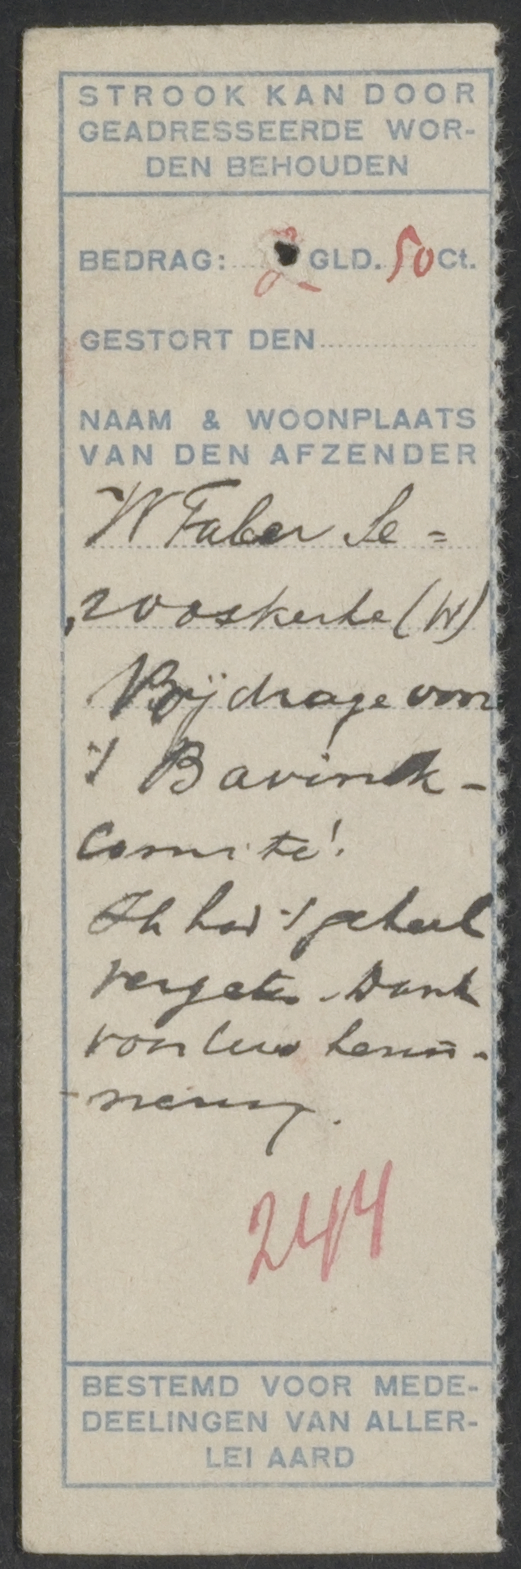 STROOK KAN DOOR
GEADRESSEERDE WOR-
DEN BEHOUDEN
BEDRAG: 2 GLD. 50 Ct.
GESTORT DEN
NAAM & WOONPLAATS
VAN DEN AFZENDER
W Faber Se=
rooskerke (W)
Bijdrage voor
't Bavinck-
comité!
Ik had 't geheel
vergeten. Dank
voor Uw herin-
nering.
244
BESTEMD VOOR MEDE-
DEELINGEN VAN ALLER-
LEI AARD